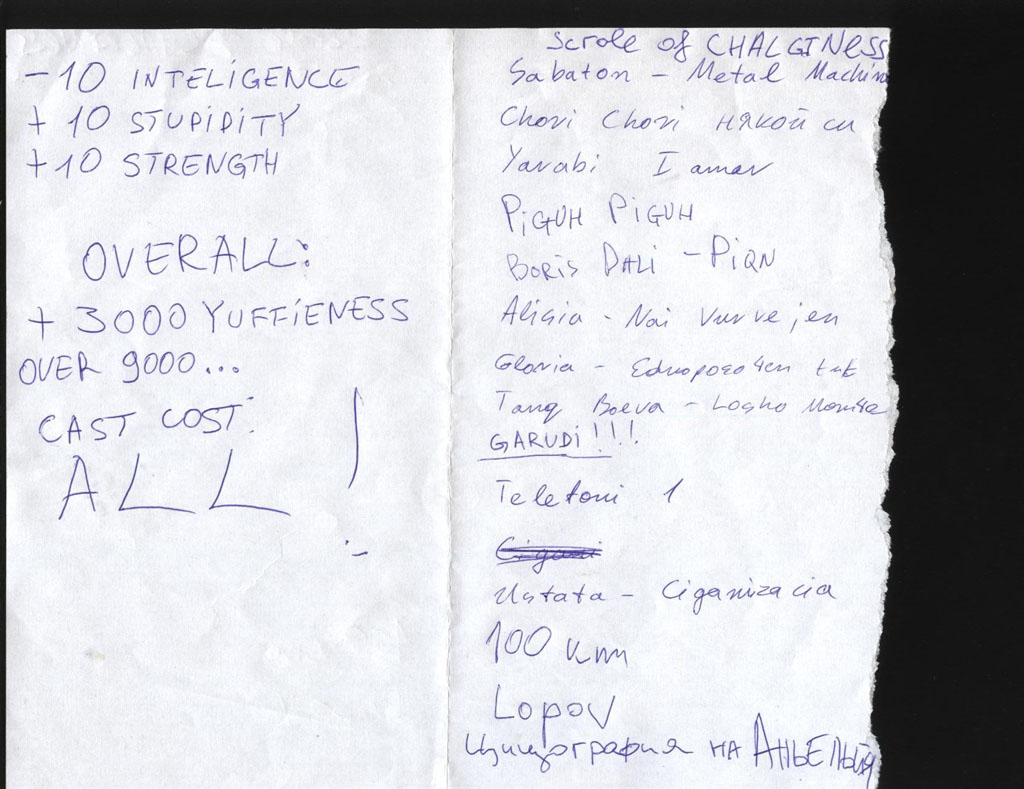 -10 INTELIGENCE
+ 10 STUPIDITY
+10 STRENGTH
OVERALL:
+ 3000 YUFFIENESS
OVER 9000...
CAST COST:
ALL !
:-
Scrole of CHALGINESS
Sabaton - Metal Machin
Chovi Chovi някой си
Yarabi I amar
PiGUH PiGUH
BORiS DALi - PiQN
Alisia - Nai Vurvejen
Gloria -
Tanq Boeva - Losho Momi4e
GARUDi!!!
Telefoni 1
Ustata - Ciganizacia
100 km
Lopov
на